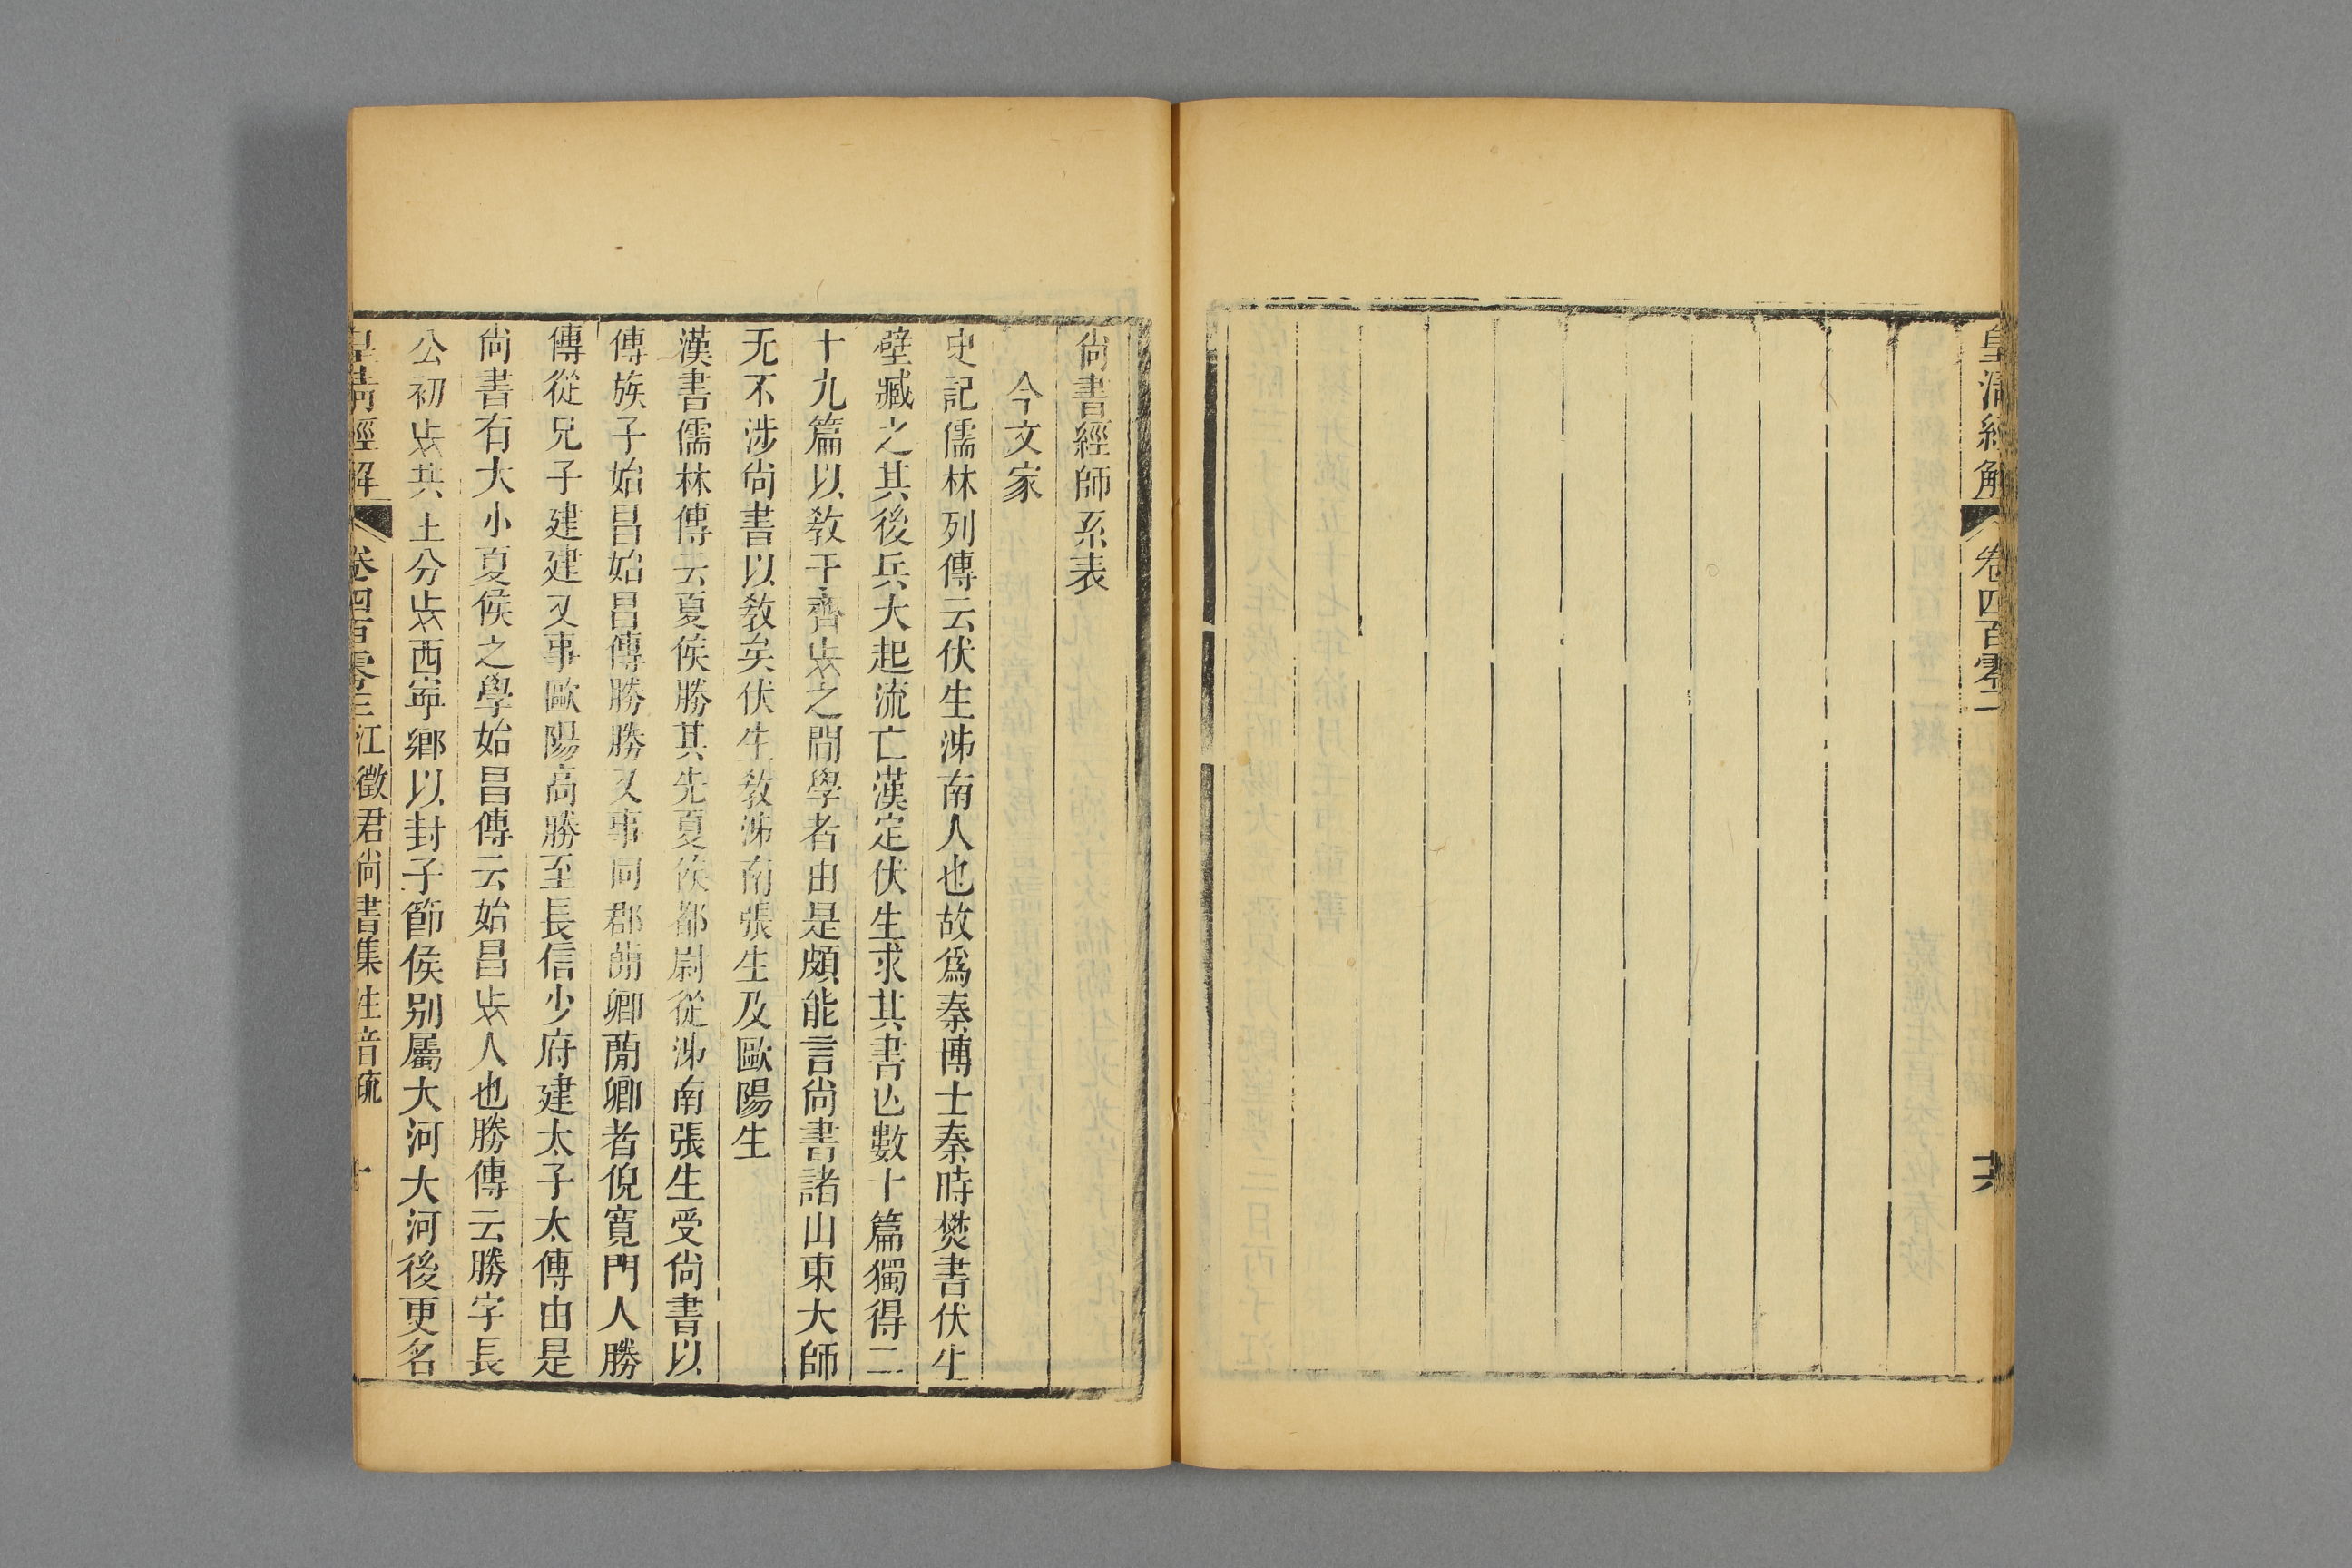 皇清經解
卷四百零二
尚書經師系表
今文家
史記儒林列傳云伏生泲南人也故爲秦博士秦時焚書伏生
壁臧之其後兵大起流亡漢定伏生求其書亾數十篇獨得二
十九篇以敎于齊𣥺之間學者由是頗能言尚書諸山東大師
无不涉尚書以敎矣伏生敎泲南張生及歐陽生
漢書儒林傳云夏侯勝其先夏侯都尉從泲南張生受尚書以
傳族子始昌始昌傳勝勝又事同郡蕳卿蕳卿者倪寬門人勝
傳從兄子建建又事歐陽高勝至長信少府建太子太傳由是
尚書有大小夏侯之學始昌傳云始昌𣥺人也勝傳云勝字長
公初𣥺共土分𣥺西寧鄉以封子節侯别屬大河大河後更名
皇清經解
卷四百零三
江徵君尚書集注音疏